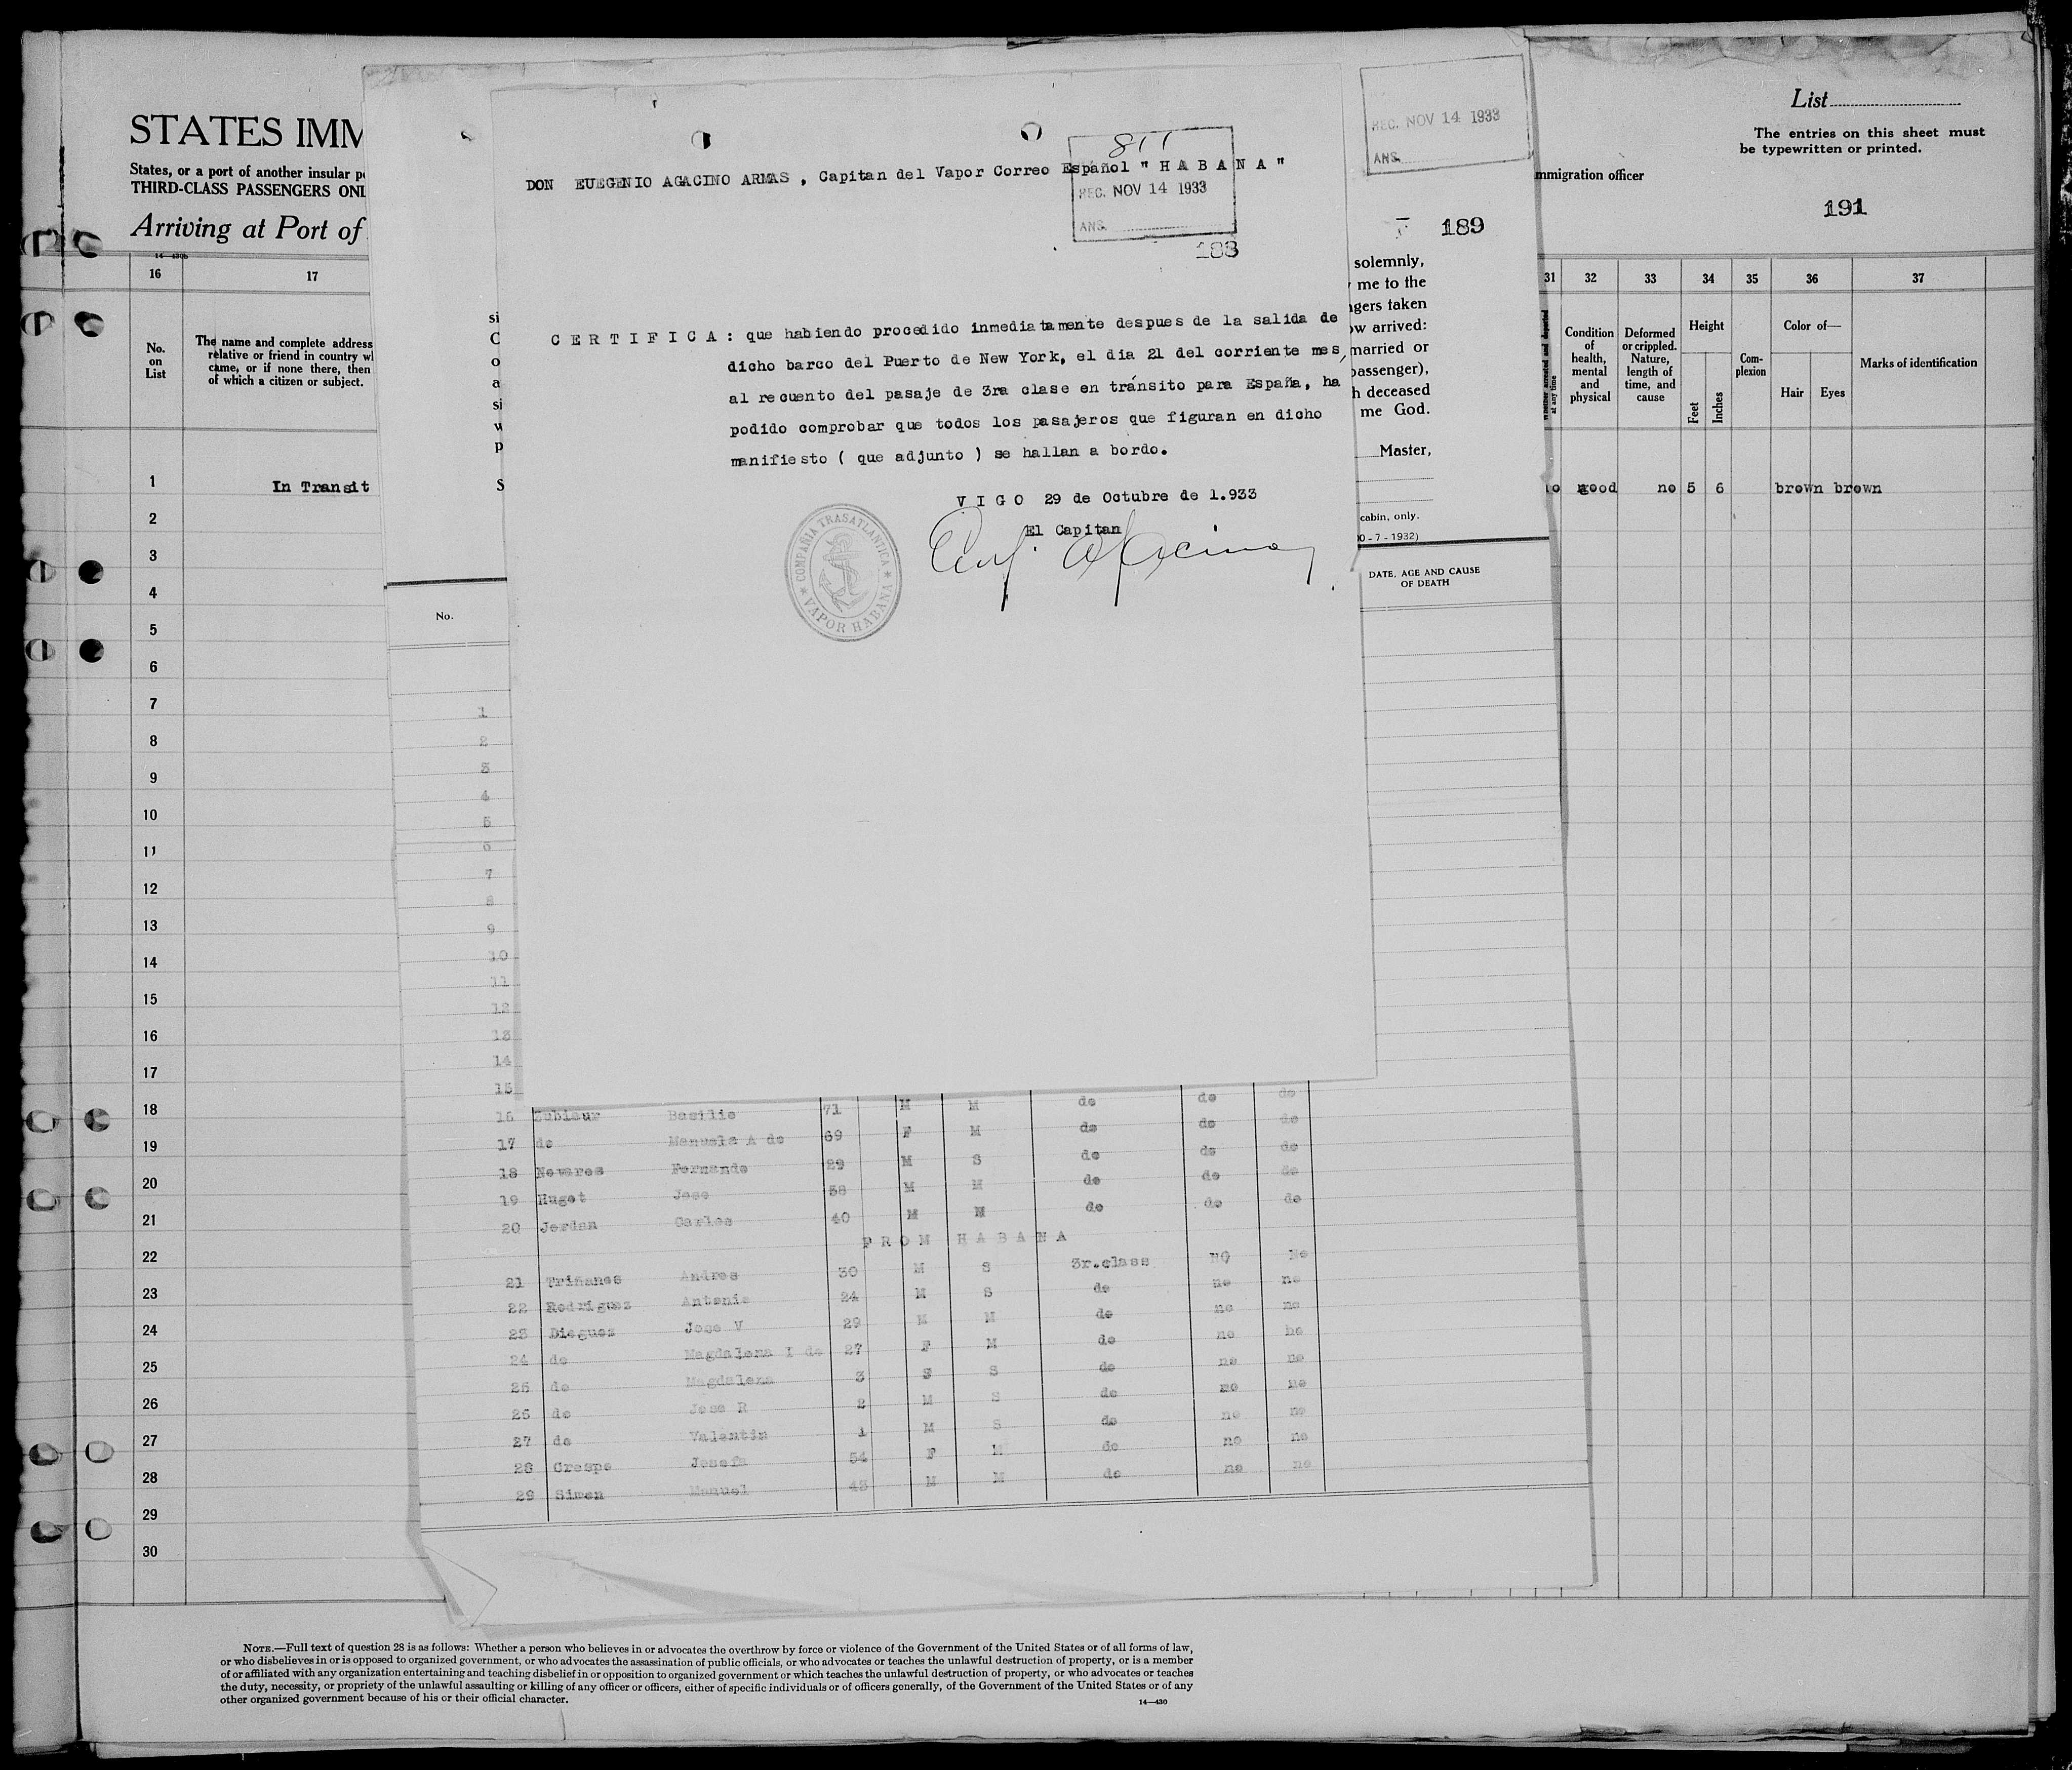 STATES IMM
States, or a port of another insular p
THIRD-CLASS PASSENGERS ONL
Arriving at Port of
14—430b
16
17
No.
on
List
The name and complete address
relative or friend in country wh
came, or if none there, then
of which a citizen or subject.
In Transit
1
2
3
4
5
6
7
8
9
10
11
12
13
14
15
16
17
18
19
20
21
22
23
24
25
26
27
28
29
30
811
REC. NOV 14 1933
ANS.
188
DON EUEGENIO AGACINO ARMAS , Capitan del Vapor Correo Español " H A B A N A "
C E R T I F I C A : que habiendo procedido inmediatamente despues de la salida de
dicho barco del Puerto de New York, el dia 21 del corriente mes,
al recuento del pasaje de 3ra clase en tránsito para España, ha
podido comprobar que todos los pasajeros que figuran en dicho
manifiesto ( que adjunto ) se hallan a bordo.
V I G O 29 de Octubre de 1.933
El Capitan
COMPAÑIA TRASATLANTICA
VAPOR HABANA
REC. NOV 14 1933
ANS.
189
si
C
o
a
si
w
p
S
solemnly,
me to the
ngers taken
ow arrived:
married or
passenger),
h deceased
me God.
Master,
cabin, only.
0 - 7 - 1932)
No.
DATE, AGE AND CAUSE
OF DEATH
1
2
3
4
5
6
7
8
9
10
11
12
13
14
15
16 Zubiaur Basilio 71 M M do do do
17 do Manuela A de 69 F M do do do
18 Novares Fernando 29 M S do do do
19 Huget Jose 38 M M do do do
20 Jordan Carlos 40 M M do do do
F R O M H A B A N A
21 Triñanes Andres 30 M S 3r.class NO No
22 Rodriguez Antonio 24 M S do no no
23 Dieguez Jose V 29 M M do no no
24 do Magdalena I de 27 F M do no no
25 do Magdalena 3 S S do no no
26 do Jose R 2 M S do no no
27 do Valentin 1 M S do no no
28 Crespo Josefa 54 F M do no no
29 Simon Manuel 43 M M do no no
List
The entries on this sheet must
be typewritten or printed.
mmigration officer
191
31
32
33
34
35
36
37
Whether arrested and deported
at any time
Condition
of
health,
mental
and
physical
Deformed
or crippled.
Nature,
length of
time, and
cause
Height
Feet
Inches
Com-
plexion
Color of—
Hair
Eyes
Marks of identification
no good no 5 6 brown brown
NOTE.—Full text of question 28 is as follows: Whether a person who believes in or advocates the overthrow by force or violence of the Government of the United States or of all forms of law,
or who disbelieves in or is opposed to organized government, or who advocates the assassination of public officials, or who advocates or teaches the unlawful destruction of property, or is a member
of or affiliated with any organization entertaining and teaching disbelief in or opposition to organized government or which teaches the unlawful destruction of property, or who advocates or teaches
the duty, necessity, or propriety of the unlawful assaulting or killing of any officer or officers, either of specific individuals or of officers generally, of the Government of the United States or of any
other organized government because of his or their official character.
14—430